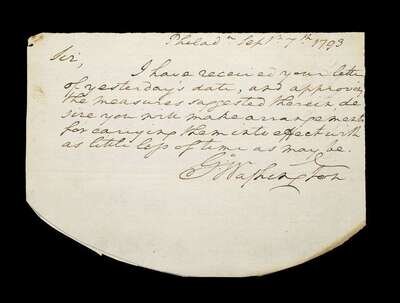 Philada Sept 7th 1793
Sir,
I have received your letter
of yesterday's date, and approving
the measures suggested therein de
sire you will make arrangements
for carrying them into effect with
as little loss of time as may be.
Go: Washington